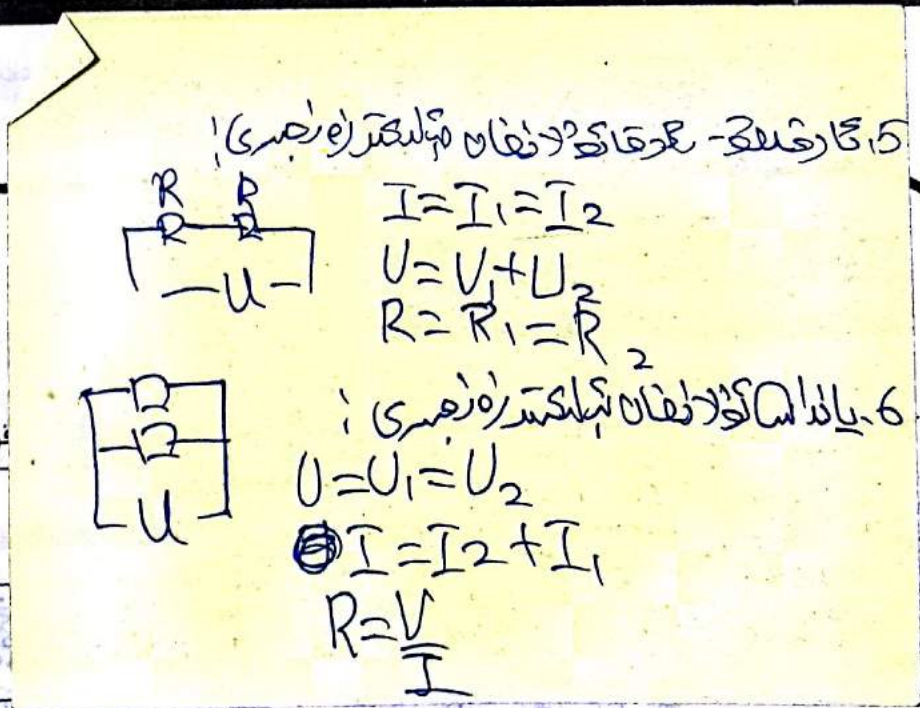 5. ئارقىمۇ-ئارقا ئۇلانغان ئېلېكتر زەنجىرى:
R R
R R
U
I=I₁=I₂
U=U₁+U₂
R=R₁=R₂
6. ئۇلانغان ئېلېكتر زەنجىرى:
U
U=U₁=U₂
I=I₂+I₁
R=V/I